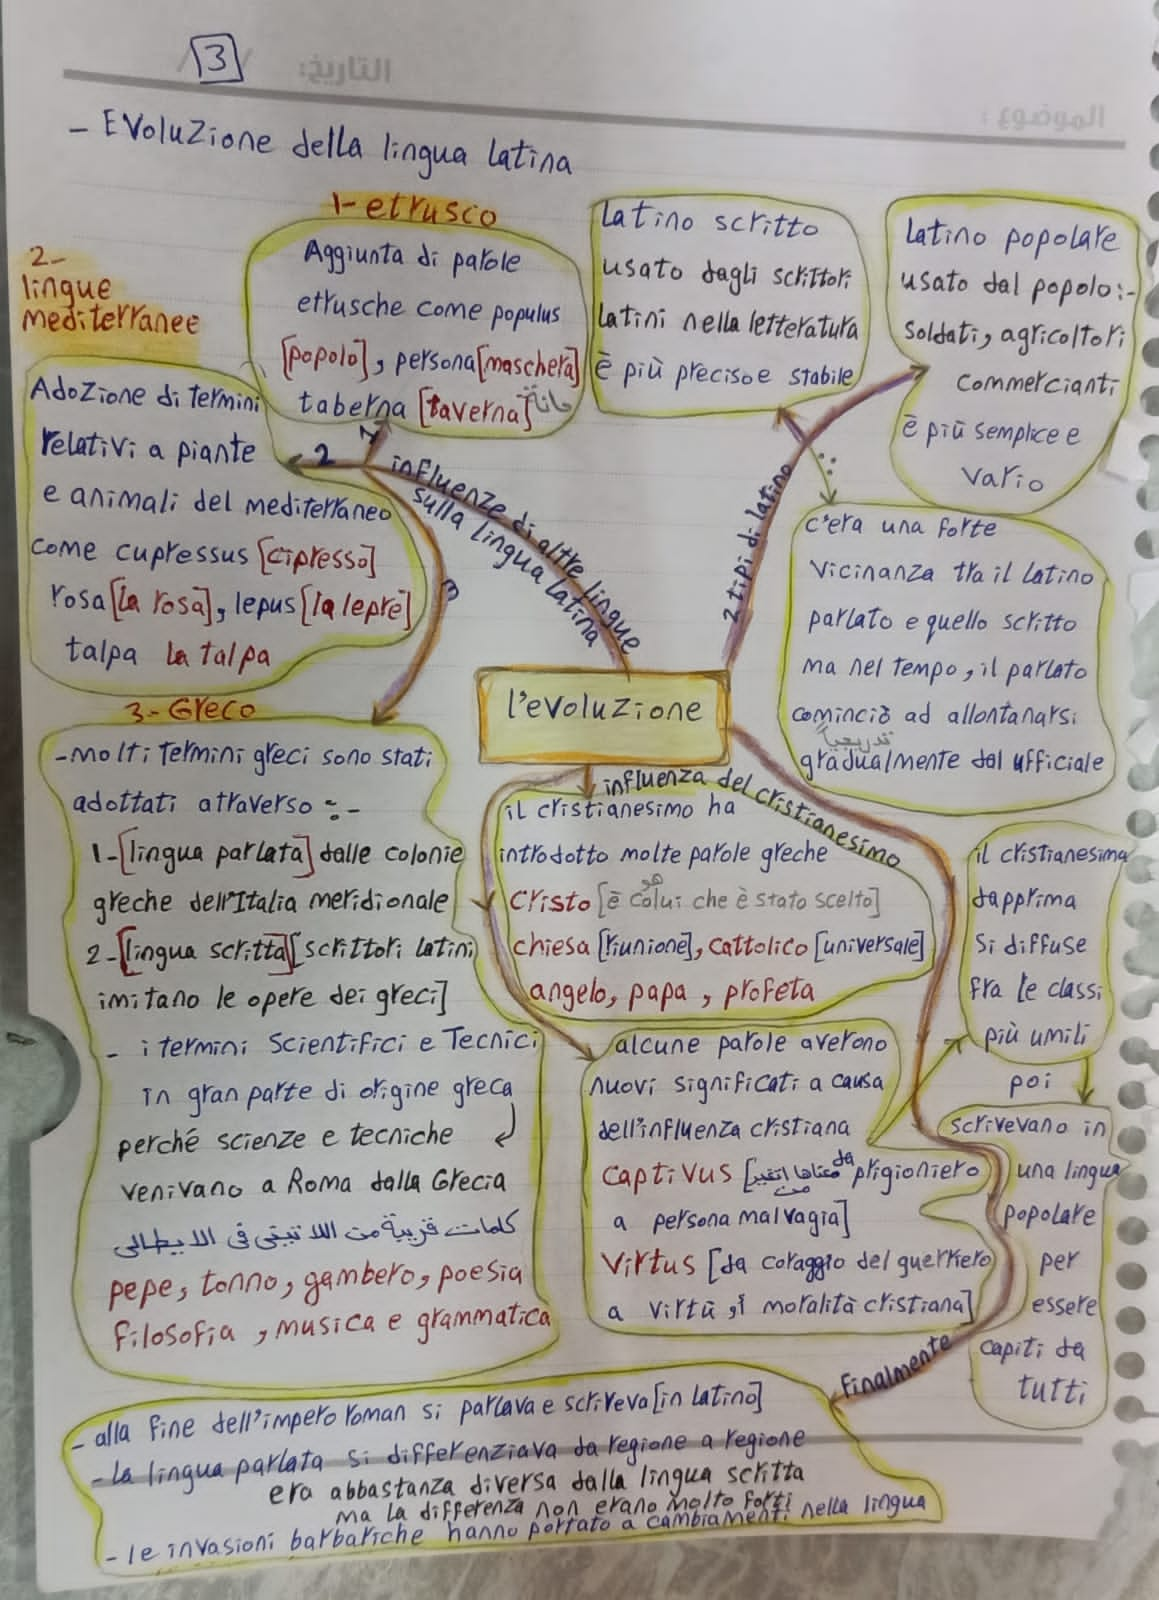 3
التاريخ:
الموضوع :
- Evoluzione della lingua latina
1- etrusco
Aggiunta di parole
etrusche come populus
[popolo], persona [maschera]
taberna [taverna] حانة
2-
lingue
mediterranee
Adozione di termini
relativi a piante
e animali del mediterraneo
come cupressus [cipresso]
rosa [la rosa], lepus [la lepre]
talpa la talpa
1
2
3
influenze di altre lingue
sulla lingua latina
3- Greco
- molti termini greci sono stati
adottati atraverso :-
1- [lingua parlata] dalle colonie
greche dell'Italia meridionale
2- [lingua scritta] [scrittori latini
imitano le opere dei greci]
- i termini scientifici e Tecnici
in gran parte di origine greca
perché scienze e tecniche
venivano a Roma dalla Grecia
كلمات قريبة من اللاتيني في الايطالي
pepe, tonno, gambero, poesia
filosofia, musica e grammatica
l'evoluzione
2 tipi di latino
latino scritto
usato dagli scrittori
latini nella letteratura
è più preciso e stabile
latino popolare
usato dal popolo:-
soldati, agricoltori
commercianti
è più semplice e
vario
c'era una forte
vicinanza tra il latino
parlato e quello scritto
ma nel tempo, il parlato
cominciò ad allontanarsi
تدريجياً
gradualmente dal ufficiale
influenza del cristianesimo
il cristianesimo ha
introdotto molte parole greche
هو
Cristo [è colui che è stato scelto]
chiesa [riunione], cattolico [universale]
angelo, papa, profeta
alcune parole averono
nuovi significati a causa
dell'influenza cristiana
captivus [معناها اتغير من da prigioniero
a persona malvagia]
virtus [da coraggio del guerriero
a virtù, moralità cristiana]
il cristianesima
dapprima
si diffuse
fra le classi
più umili
poi
scrivevano in
una lingua
popolare
per
essere
capiti da
tutti
Finalmente
- alla fine dell'impero roman si parlava e scriveva [in latino]
- la lingua parlata si differenziava da regione a regione
era abbastanza diversa dalla lingua scritta
ma la differenza non erano molto forti
- le invasioni barbariche hanno portato a cambiamenti nella lingua